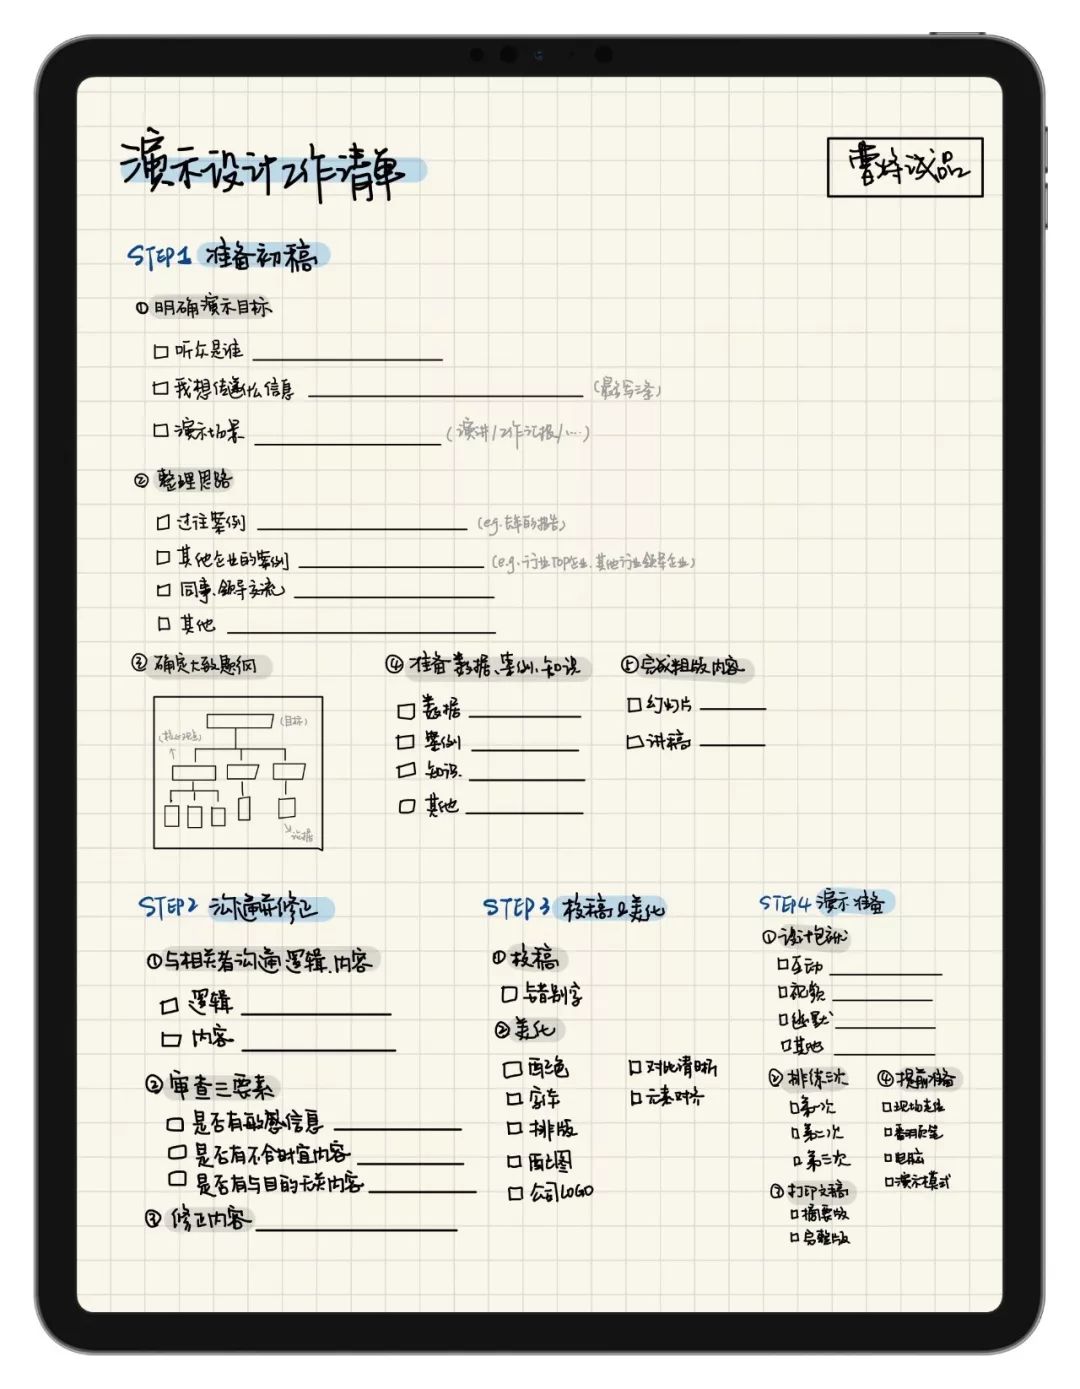 演示设计工作清单
曹将诚品
STEP1 准备初稿
① 明确演示目标
□ 听众是谁
□ 我想传递什么信息 (最多写三条)
□ 演示场景 (演讲/工作汇报/…)
② 整理思路
□ 过往案例 (e.g.去年的报告)
□ 其他企业的案例 (e.g.行业TOP企业、其他行业领导企业)
□ 同事、领导交流
□ 其他
③ 确定大致思纲
(目标)
(核心观点)
论据
④ 准备数据、案例、知识
□ 数据
□ 案例
□ 知识
□ 其他
⑤ 完成粗版内容
□ 幻灯片
□ 讲稿
STEP2 沟通并修正
① 与相关者沟通逻辑、内容
□ 逻辑
□ 内容
② 审查三要素
□ 是否有敏感信息
□ 是否有不合时宜内容
□ 是否有与目的无关内容
③ 修正内容
STEP3 校稿及美化
① 校稿
□ 错别字
② 美化
□ 配色
□ 字体
□ 排版
□ 配图
□ 公司LOGO
□ 对比清晰
□ 元素对齐
STEP4 演示准备
① 设计包袱
□ 互动
□ 视频
□ 幽默
□ 其他
② 排练三次
□ 第一次
□ 第二次
□ 第三次
③ 打印文稿
□ 摘要版
□ 完整版
④ 提前准备
□ 现场走位
□ 翻页笔
□ 电脑
□ 演示模式